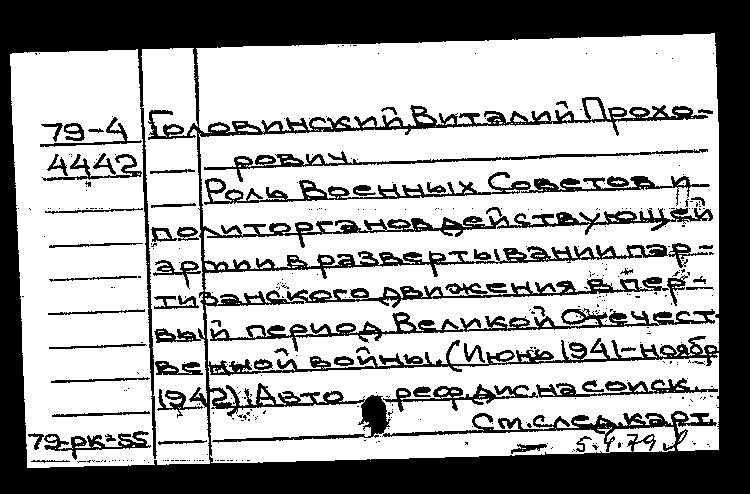 79-4 Головинский, Виталий Прохо-
4442 рович.
Роль Военных Советов и
политорганов действующей
армии в развертывании пар-
тизанского движения в пер-
вый период Великой Отечест-
венной войны. (Июнь 1941-ноябр
1942): Авто реф. дис. на соиск.
См. след. карт.
79-рк-55 5.4.79